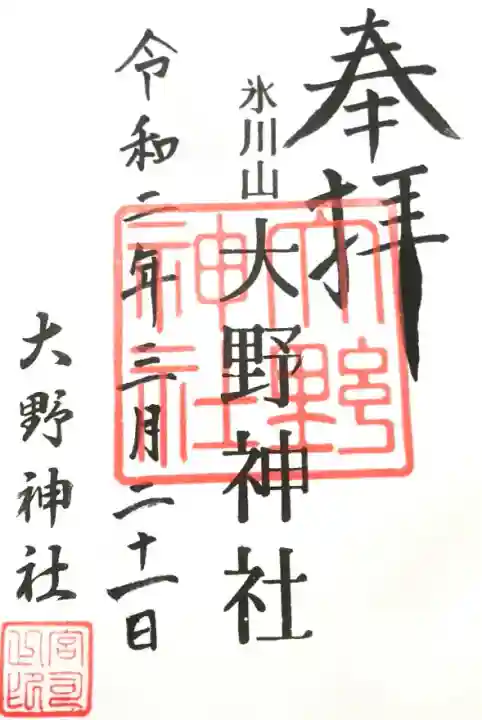 奉拝
氷川山
大野神社
大野神社
令和二年三月二十一日
大野神社